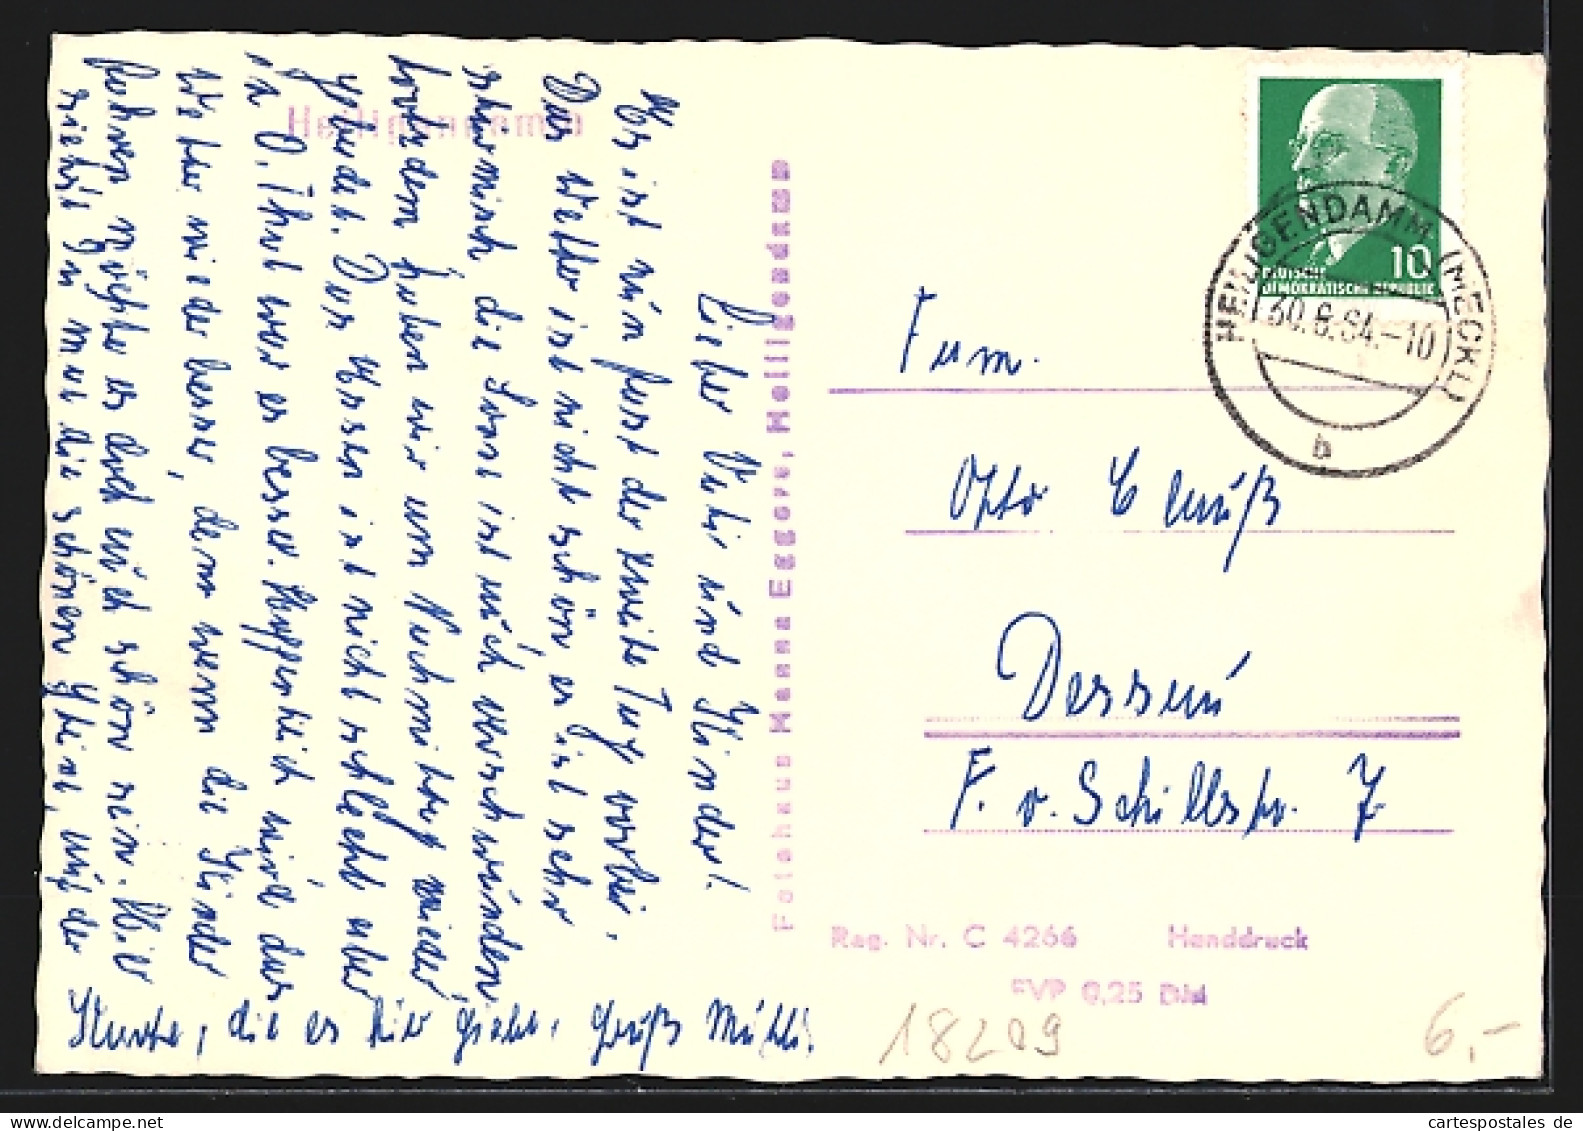 Heiligendamm
Lieber Vati und Kinder!
Es ist nun fast der zweite Tag vorbei.
Das Wetter ist nicht schön es ist sehr
stürmisch, die Sonne ist auch verschwunden
trotzdem haben wir am Nachmittag wieder
gebadet. Das Essen ist nicht schlecht aber
in O. Thal war es besser. Hoffentlich wird das
Wetter wieder besser, denn wenn die Kinder
kommen möchte es doch auch schön sein. Hier
siehst Du mal die schönen Steine, auf der
Karte, die es hier giebt. Gruß Mutti.
Fotohaus Manna Eggers, Heiligendamm
DEUTSCHE
DEMOKRATISCHE REPUBLIK
10
HEILIGENDAMM (MECKL)
30.6.64.-10
b
Fam.
Otto
Dessau
F. v. Schillstr. 7
Rag. Nr. C 4266 Handdruck
EVP 0,25 DM
18209
6,-
cartespostales de